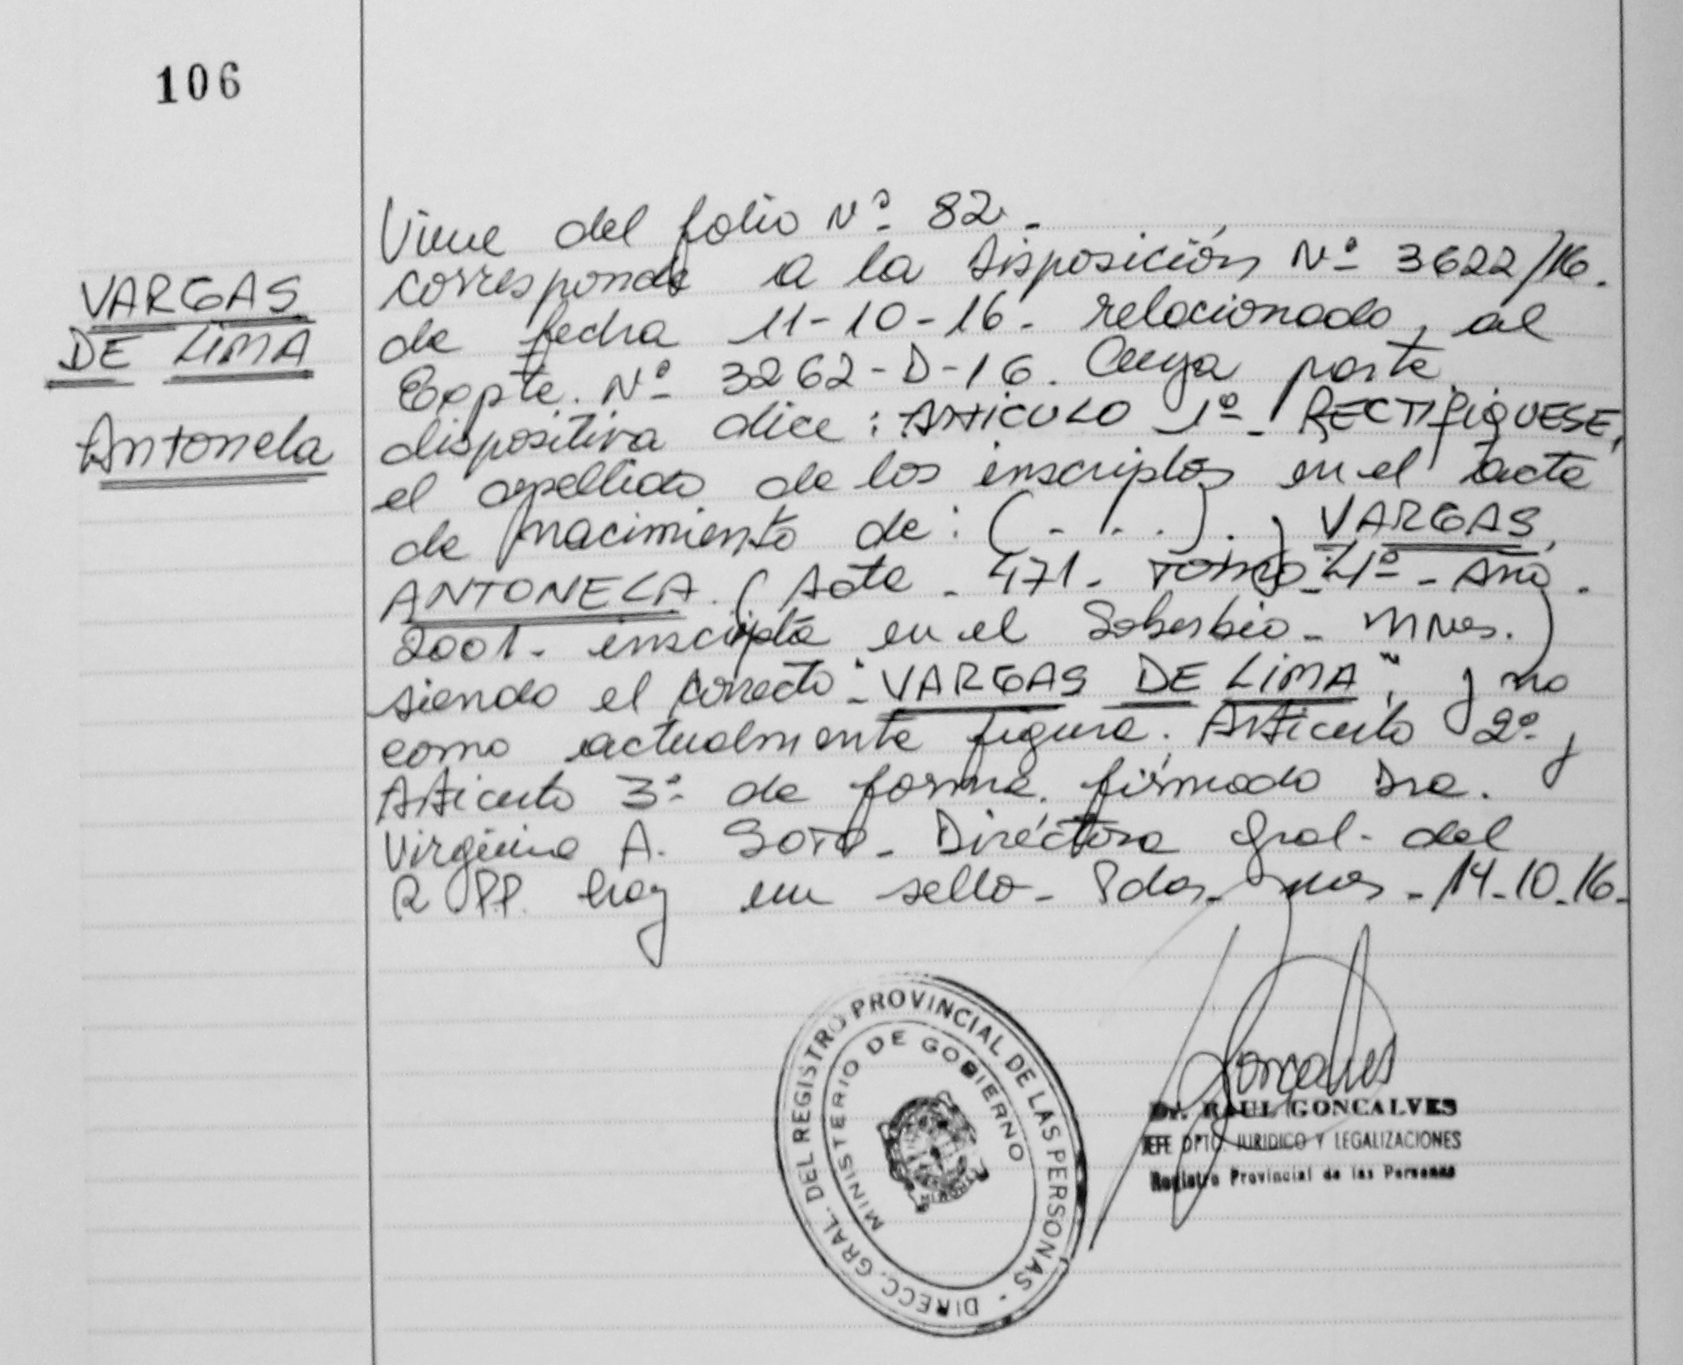 106
VARGAS
DE LIMA
Antonela
Viene del folio Nº 82.-
corresponde a la Disposición Nº 3622/16.
de fecha 11-10-16. relacionado, al
Expte. Nº 3262-D-16. Cuya parte
dispositiva dice: ARTICULO 1º- RECTIFIQUESE,
el apellido de los inscriptos en el acta
de nacimiento de: (....). VARGAS,
ANTONELA. (Acta - 471- Tomo- - Año.
2001- inscripta en el Soberbio- Mnes.)
siendo el correcto: "VARGAS DE LIMA", y no
como actualmente figura. Articulo 2º y
Articulo 3º de forma. firmado Dra.
Virginia A. SOTO- Directora Gral- del
R.P.P. hay un sello- Pdas- Mnes - 14-10-16-
DIRECC. GRAL. DEL REGISTRO PROVINCIAL DE LAS PERSONAS -
MINISTERIO DE GOBIERNO
MISIONES
Goncalves
Dr. RAUL GONCALVES
JEFE DPTO. JURIDICO Y LEGALIZACIONES
Registro Provincial de las Personas